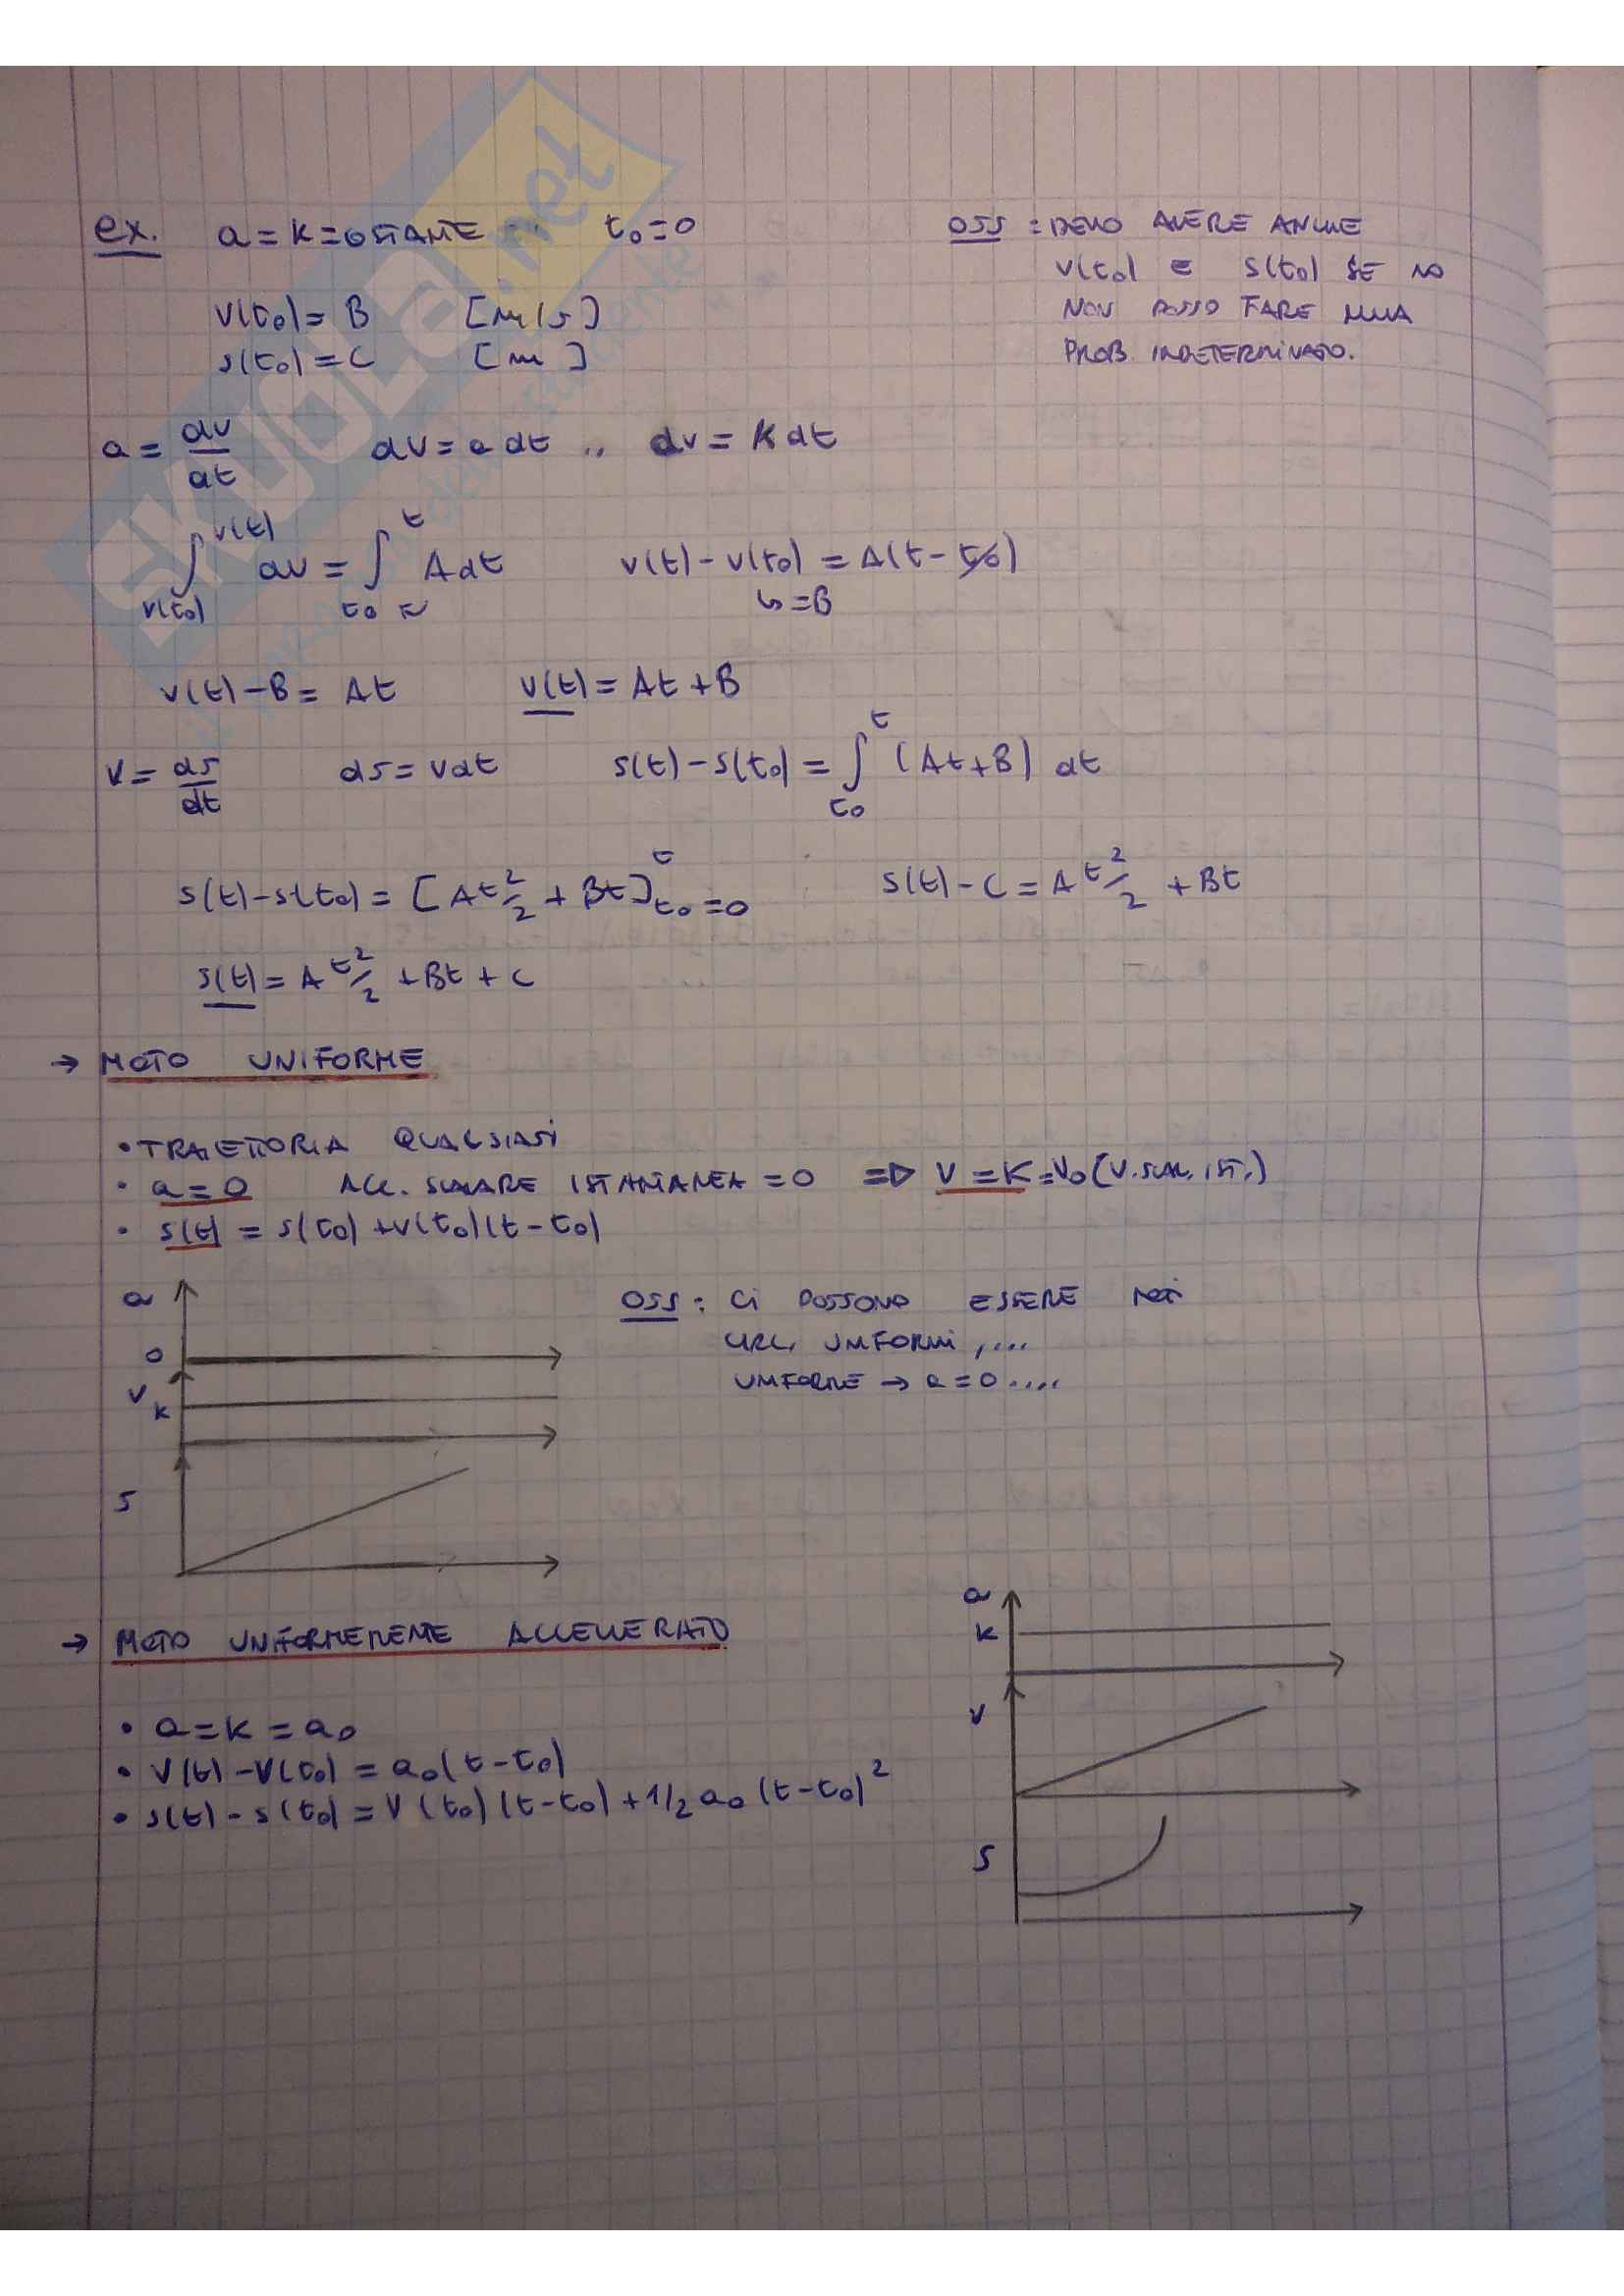 ex. a = K = COSTANTE t₀ = 0
v(t₀) = B [m/s]
s(t₀) = C [m]
OSS: DEVO AVERE ANCHE
v(t₀) e s(t₀) SE NO
NON POSSO FARE NULLA
PROB. INDETERMINATO.
a = dv/dt dv = a dt .. dv = K dt
∫_{v(t₀)}^{v(t)} dv = ∫_{t₀}^{t} A dt v(t) - v(t₀) = A(t - t₀)
↳ = B
v(t) - B = At v(t) = At + B
v = ds/dt ds = v dt s(t) - s(t₀) = ∫_{t₀}^{t} (At + B) dt
s(t) - s(t₀) = [A t²/2 + Bt]_{t₀=0}^{t} s(t) - C = A t²/2 + Bt
s(t) = A t²/2 + Bt + C
→ MOTO UNIFORME
• TRAIETTORIA QUALSIASI
• a = 0 ACC. SCALARE ISTANTANEA = 0 => V = K = V₀ (V. SCAL. IST.)
• s(t) = s(t₀) + v(t₀)(t - t₀)
a
0
v
k
s
OSS: Ci POSSONO ESSERE MOTi
CIRC. UNIFORMI, ...
UNIFORME → a = 0 ....
→ MOTO UNIFORMEMENTE ACCELLERATO
• a = K = a₀
• V(t) - V(t₀) = a₀(t - t₀)
• s(t) - s(t₀) = V(t₀)(t - t₀) + 1/2 a₀ (t - t₀)²
a
k
v
s
SKUOLA.net